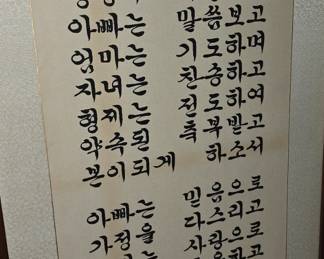 아빠는 말씀보고
엄마는 기도하며
자녀는 찬송하고
형제는 전도하여
약속된 축복받고
본이되게 하소서
아빠는 믿음으로
가정을 다스리고
사랑으로